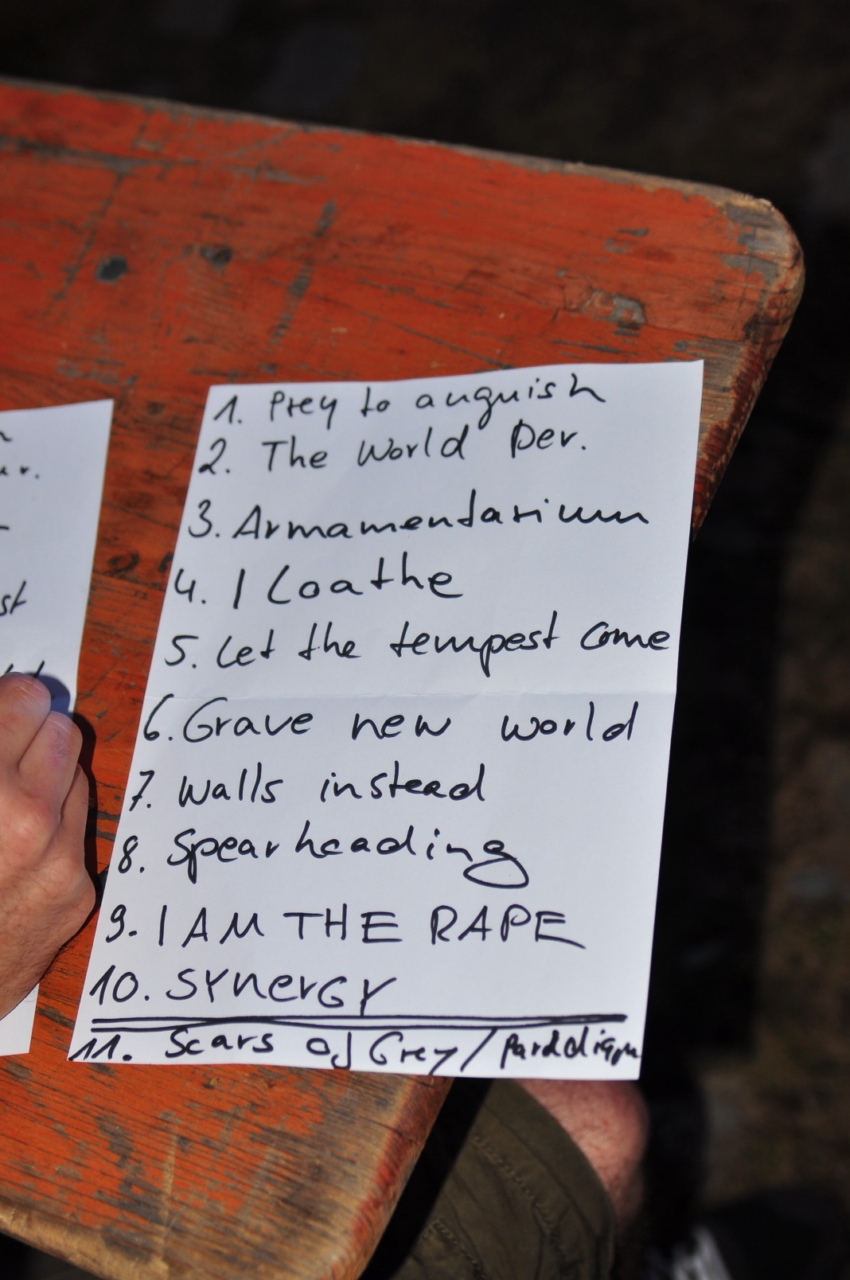 1. Prey to anguish
2. The World Der.
3. Armamendarium
4. I Loathe
5. Let the tempest come
6. Grave new world
7. Walls instead
8. Spearheading
9. I AM THE RAPE
10. SYnerGY
11. Scars of Grey / Paradigm
st